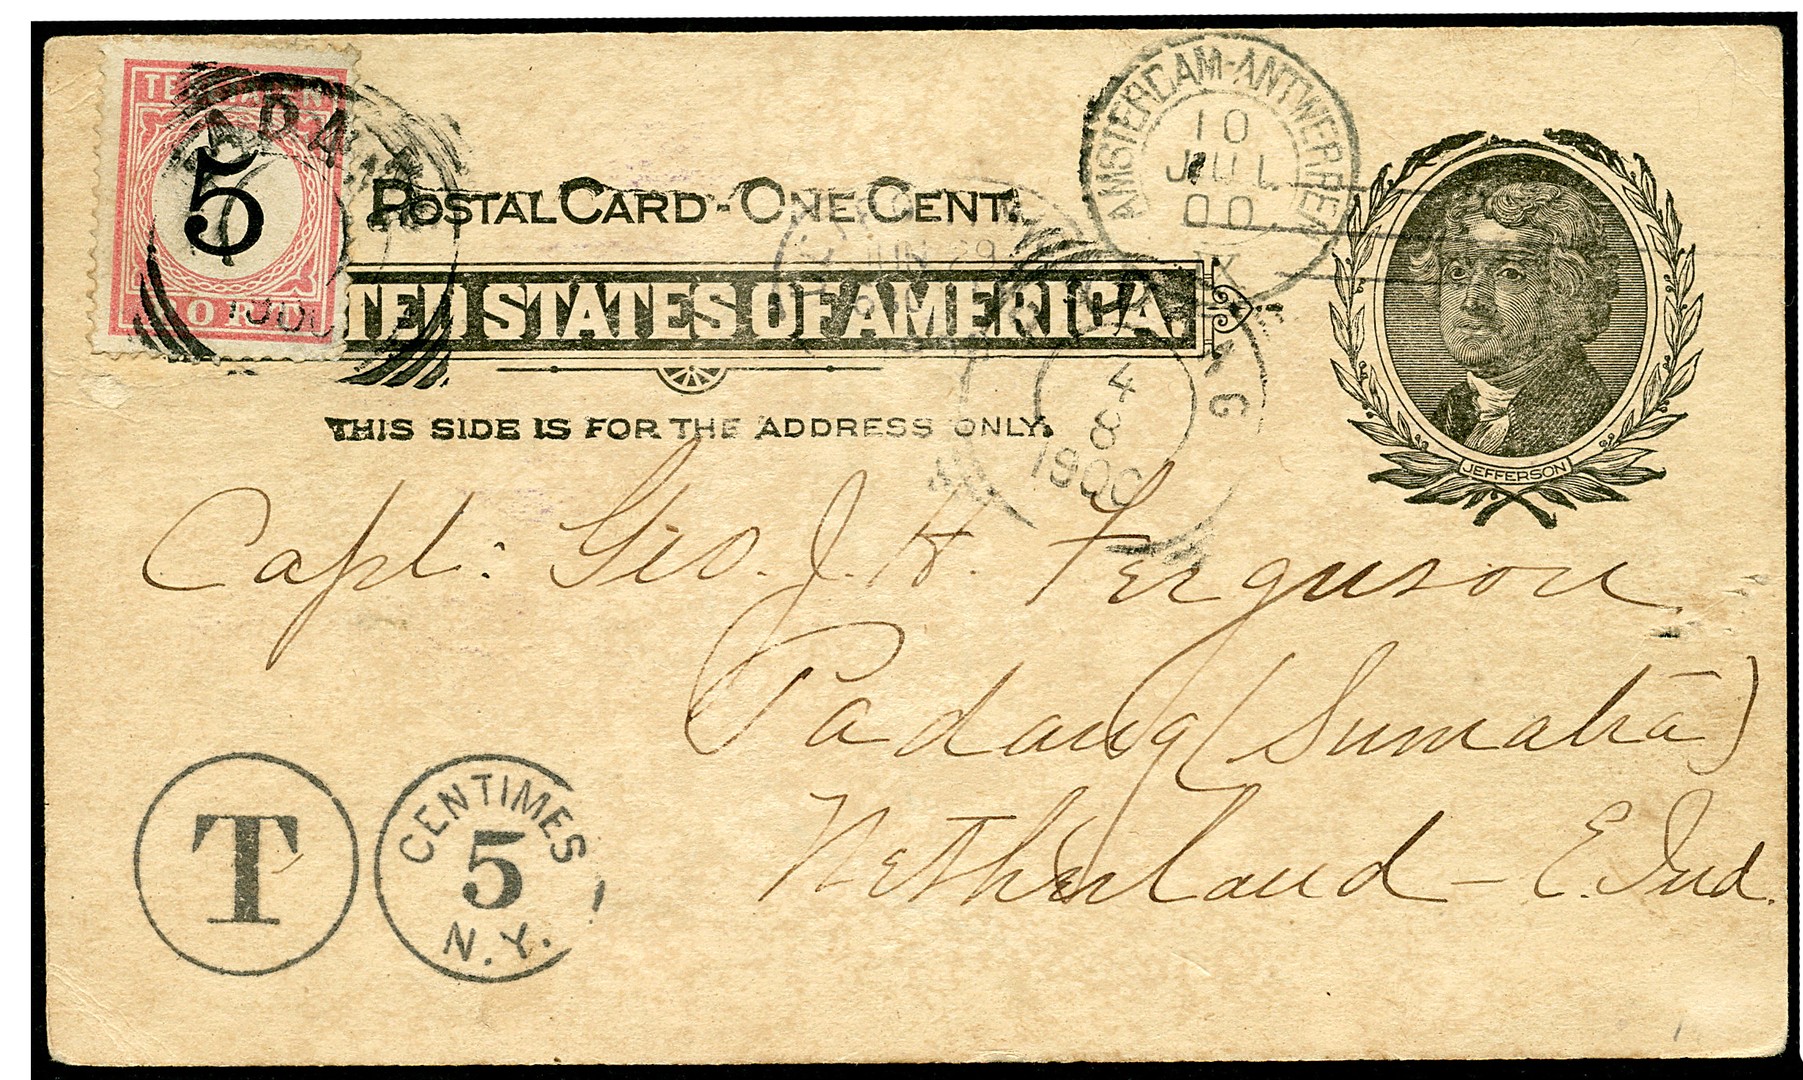 TE BETALEN
5
PORT
PADANG
1900
AMSTERDAM-ANTWERPEN
10
JUL
00
X
POSTAL CARD-ONE CENT.
JUN 29
UNITED STATES OF AMERICA.
JEFFERSON
4
8
1900
THIS SIDE IS FOR THE ADDRESS ONLY.
Capt. Geo. J. H. Ferguson
Padang (Sumatra)
Netherland - E. Ind.
T
CENTIMES
5
N.Y.